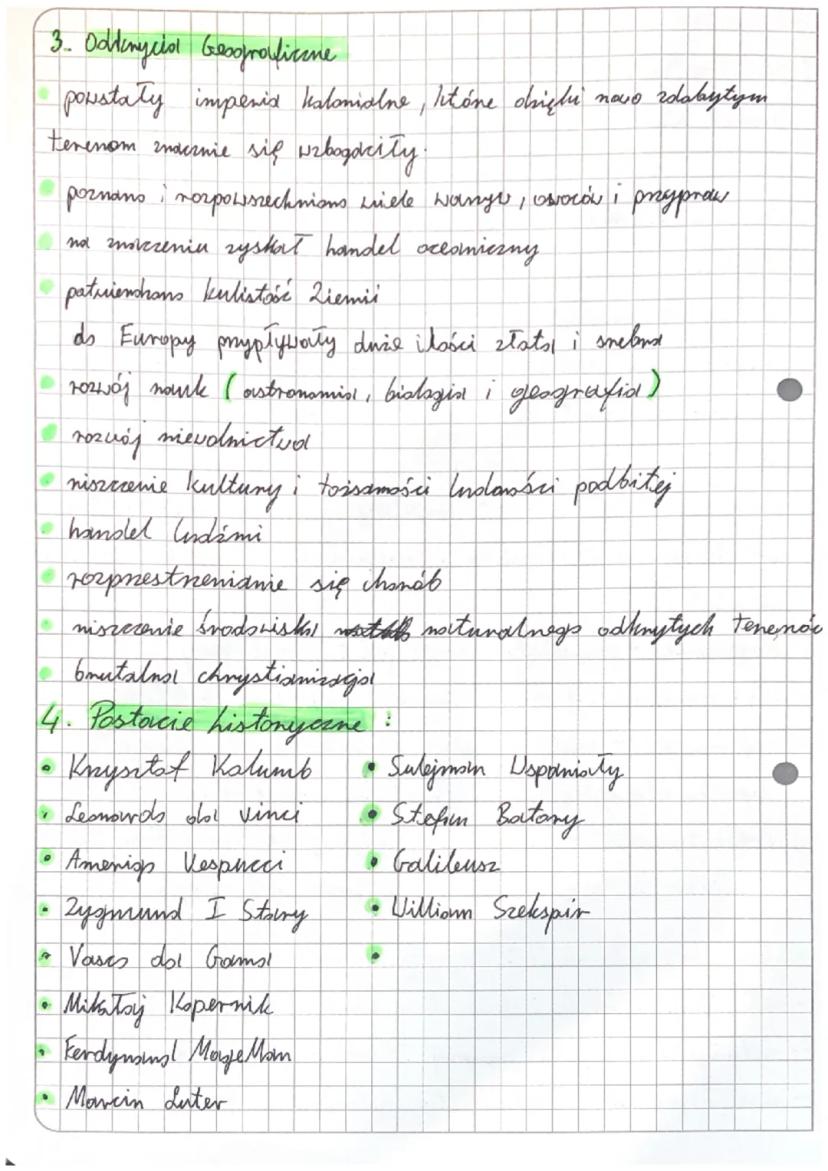 3. Odkrycia Geograficzne
• powstały imperia kolonialne, które dzięki nowo zdobytym
terenom znacznie się wzbogaciły.
• poznano i rozpowszechniono wiele warzyw, owoców i przypraw
• na znaczeniu zyskał handel oceaniczny
• potwierdzono kulistość Ziemii
do Europy przypływały duże ilości złota i srebra
• rozwój nauk (astronomia, biologia i geografia)
• rozwój niewolnictwa
• niszczenie kultury i tożsamości ludności podbitej
• handel ludźmi
• rozprzestrzenianie się chorób
• niszczenie środowiska naturalnego odkrytych terenów
• brutalna chrystianizacja
4. Postacie historyczne :
• Krzysztof Kolumb
• Leonardo da Vinci
• Amerigo Vespucci
• Zygmund I Stary
• Vasco da Gama
• Mikołaj Kopernik
• Ferdynand Magellan
• Marcin Luter
• Sulejman Wspaniały
• Stefan Batory
• Galileusz
• William Szekspir
•